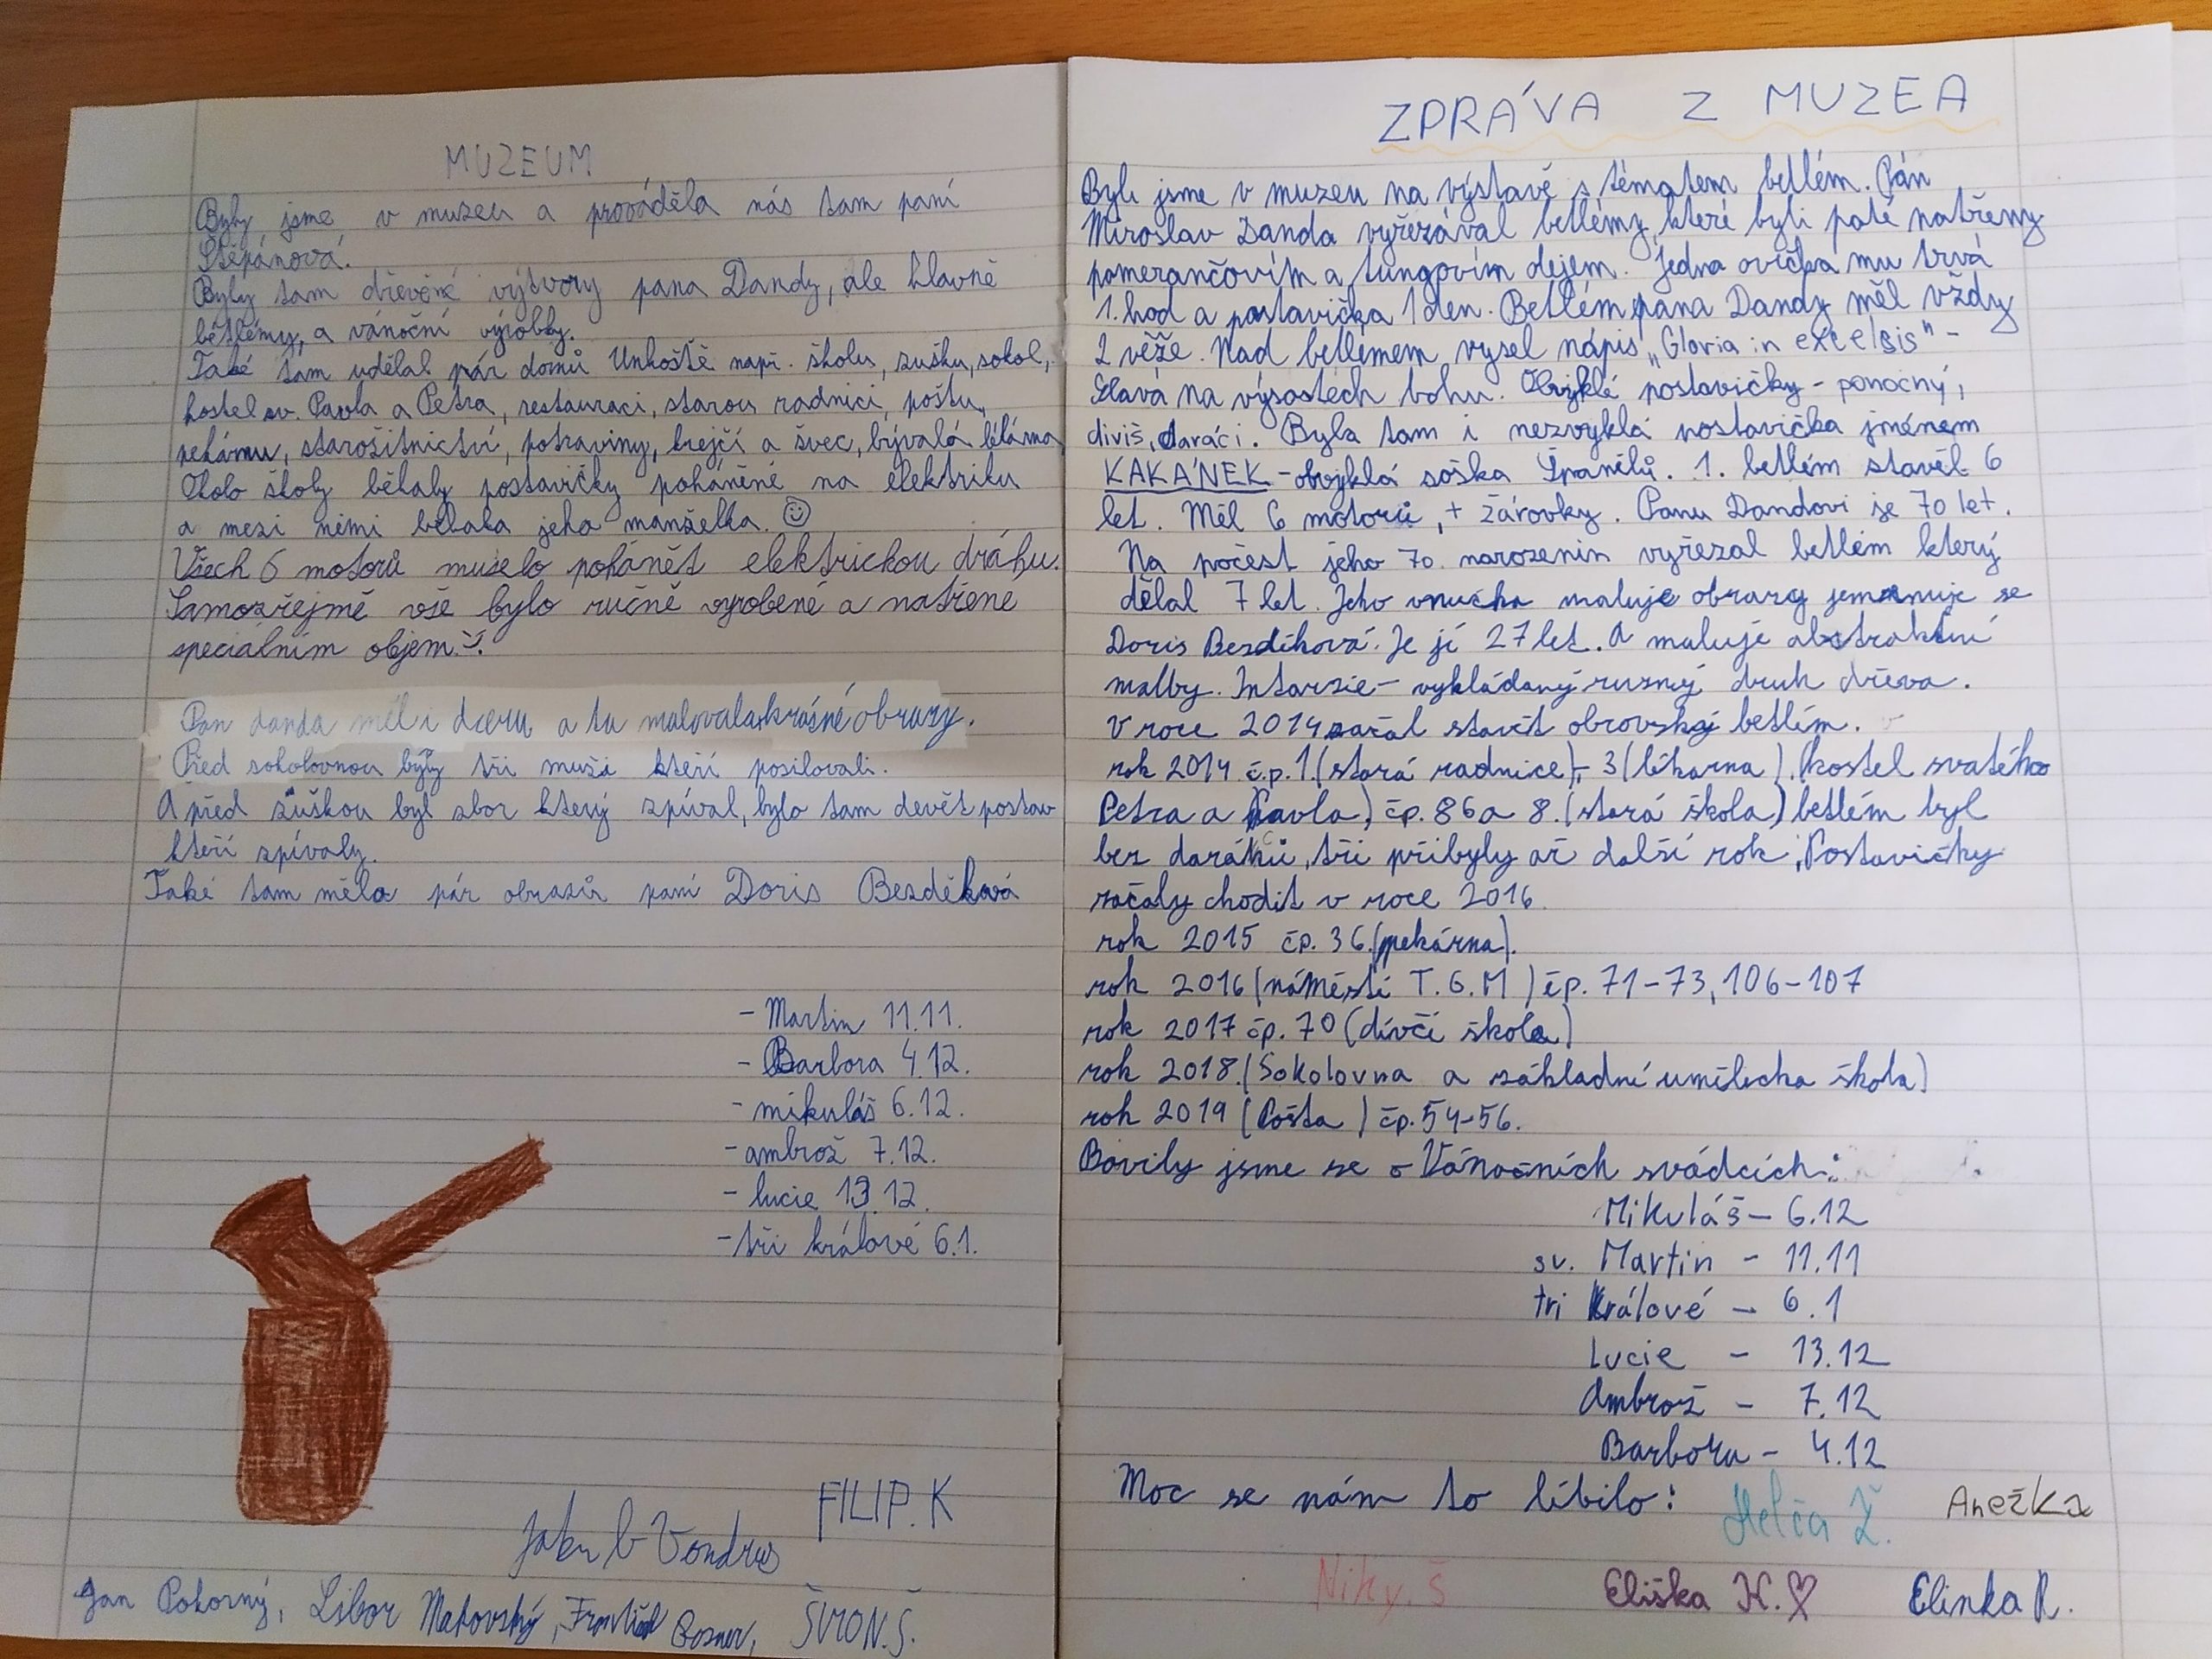 MUZEUM
Byly jsme v muzeu a prováděla nás tam paní
Štěpánová.
Byly tam dřevěné výtvory pana Dandy, ale hlavně
bětlémy, a vánoční výrobky.
Také tam udělal pár domů Unhoště např. školu, zušku, sokol,
kostel sv. Pavla a Petra, restauraci, starou radnici, poštu,
pekárnu, starožitnictví, potraviny, krejčí a švec, bývalá lékárna
Okolo školy běhaly postavičky poháněné na elektriku
a mezi němi běhala jeho manželka. ☺
Všech 6 motorů muselo pohánět elektrickou dráhu.
Samozřejmě vše bylo ručně vyrobené a natřené
speciálním olejem.
Pan danda měl i dceru a ta malovala krásné obrazy.
Před sokolovnou byly tři muži kteří posilovali.
A před zuškou byl sbor který zpíval, bylo tam devět postav
kteří zpívaly.
Také tam měla pár obrazů paní Doris Bezděková
- Martin 11.11.
- Barbora 4.12.
- mikuláš 6.12.
- ambrož 7.12.
- lucie 13.12.
- tři králové 6.1.
FILIP. K
Jakub Vondrus
Jan Pokorný, Libor Makovský, František
ZPRÁVA Z MUZEA
Byli jsme v muzeu na výstavě s tématem betlém. Pán
Miroslav Danda vyřezával betlémy, které byli poté natřeny
pomerančovím a tungovím olejem. Jedna ovička mu trvá
1. hod a postavička 1 den. Betlém pana Dandy měl vždy
2 věže. Nad betlémem vysel nápis „Gloria in excelsis" -
Sláva na výsostech bohu. Obvyklé postavičky - ponocný,
diviš, daráci. Byla tam i nezvyklá postavička jménem
KAKÁNEK - obvyklá soška Španělů. 1. betlém stavěl 6
let. Měl 6 motorů, + žárovky. Panu Dandovi je 70 let.
Na počest jeho 70. narozenin vyřezal betlém který
dělal 7 let. Jeho vnučka maluje obrazy jmenuje se
Doris Bezděková. Je jí 27 let. A maluje abstraktní
malby. Intarzie - vykládaný ruzný druh dřeva.
V roce 2014 začal stavit obrovský betlém.
rok 2014 č.p. 1. (stará radnice), 3 (lékarna). (kostel svatého
Petra a Pavla) čp. 86 a 8. (stará škola) betlém byl
bez daráků, tři přibyly až další rok, Postavičky
začaly chodit v roce 2016.
rok 2015 čp. 36. (pekárna).
rok 2016 (náměstí T. G. M) čp. 71-73, 106-107
rok 2017 čp. 70 (dívčí škola)
rok 2018. (Sokolovna a základní umělecka škola)
rok 2019 (Pošta) čp. 54-56.
Bavily jsme se o Vánočních svádcích:
Mikuláš - 6.12
sv. Martin - 11.11
tri Králové - 6.1
Lucie - 13.12
Ambrož - 7.12
Barbora - 4.12
Moc se nám to líbilo: Helča Ž. Anežka
Niky. Š Eliška K. Elinka R.